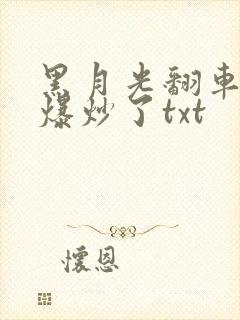 黑月光翻車
爆炒了txt
懷恩